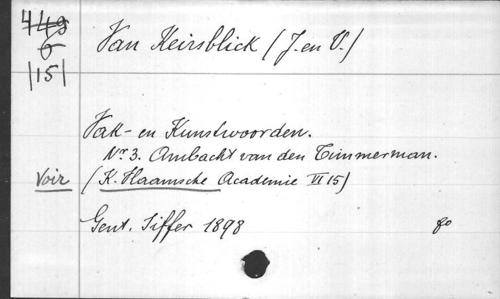 449
6
|15|
Van Keirsblick (J. en V.)
Vak- en Kunstwoorden.
Nr. 3. Ambacht van den Timmerman.
Voir (K. Vlaamsche Academie VI 15)
Gent. Siffer 1898